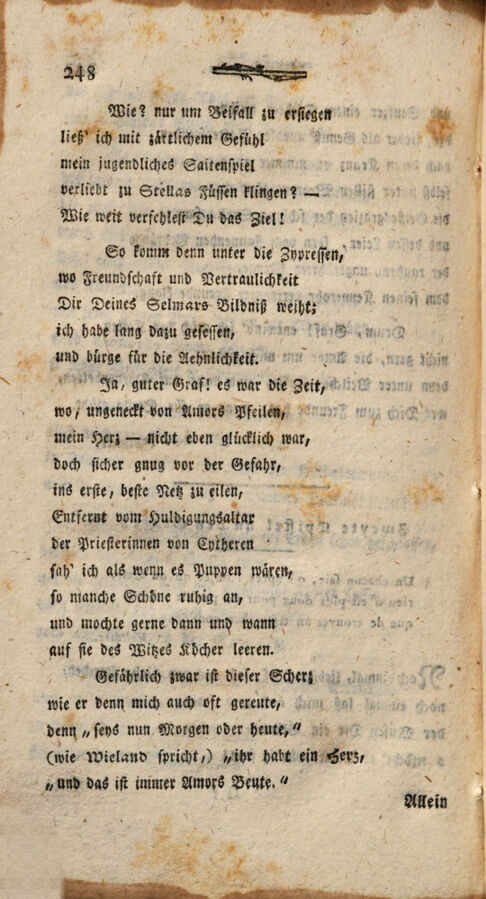 248
Wie? nur um Beifall zu ersiegen
ließ' ich mit zärtlichem Gefühl
mein jugendliches Saitenspiel
verliebt zu Stellas Füssen klingen? —
Wie weit verfehlest Du das Ziel!
So komm denn unter die Zypressen,
wo Freundschaft und Vertraulichkeit
Dir Deines Selmars Bildniß weiht;
ich habe lang dazu gesessen,
und bürge für die Aehnlichkeit.
Ja, guter Graf! es war die Zeit,
wo, ungeneckt von Amors Pfeilen,
mein Herz — nicht eben glücklich war,
doch sicher gnug vor der Gefahr,
ins erste, beste Netz zu eilen,
Entfernt vom Huldigungsaltar
der Priesterinnen von Cytheren
sah' ich als wenn es Puppen wären,
so manche Schöne ruhig an,
und mochte gerne dann und wann
auf sie des Witzes Köcher leeren.
Gefährlich zwar ist dieser Scherz
wie er denn mich auch oft gereute,
denn „seys nun Morgen oder heute,“
(wie Wieland spricht,) „ihr habt ein Herz,
„und das ist immer Amors Beute.“
Allein